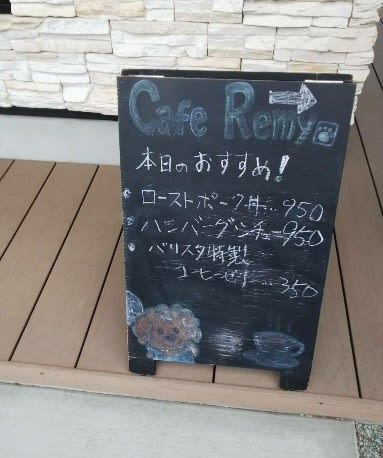 Cafe Remy
本日のおすすめ!
ローストポーク丼…950
ハンバーグシチュー950
バリスタ特製!
コーヒーゼリー…350